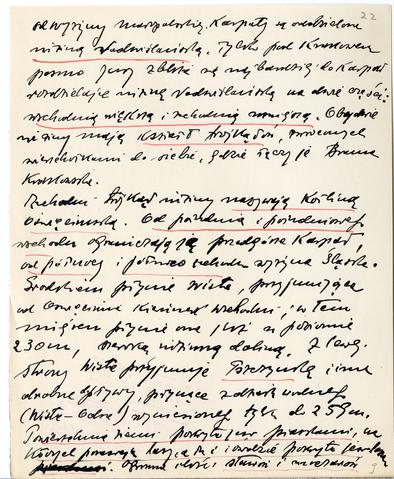 22
od wyżyny małopolskiej. Karpaty są oddzielone
niziną Nadwiślańską. Tylko pod Krakowem
pasmo Jury zbliża się najbardziej do Karpat
rozdzielając nizinę Nadwiślańską na dwie części:
wschodnią większą i zachodnią mniejszą. Obydwie
niziny mają kształt trójkątów, zwróconych
wierzchołkami do siebie, gdzie łączy je Brama
Krakowska.
Zachodni trójkąt niziny nazywają Kotliną
Oświęcimską. Od południa i południowego
wschodu ograniczają ją przedgórze Karpat,
od północy i północo zachodu wyżyna Śląska.
Środkiem płynie Wisła, przyjmująca
od Oświęcimia kierunek wschodni; w tem
miejscu płynie ona już w poziomie
230 m, szeroką nizinną doliną. Z lewej
strony Wisła przyjmuje i inne
drobne dopływy, płynące z działu wodnego
(Wisła-Odra) wzniesionej tylko do 259 m.
Powierzchnia ziemi pokryta jest piaskami, na
których i
Ogromne ilości stawów i moczarów
9